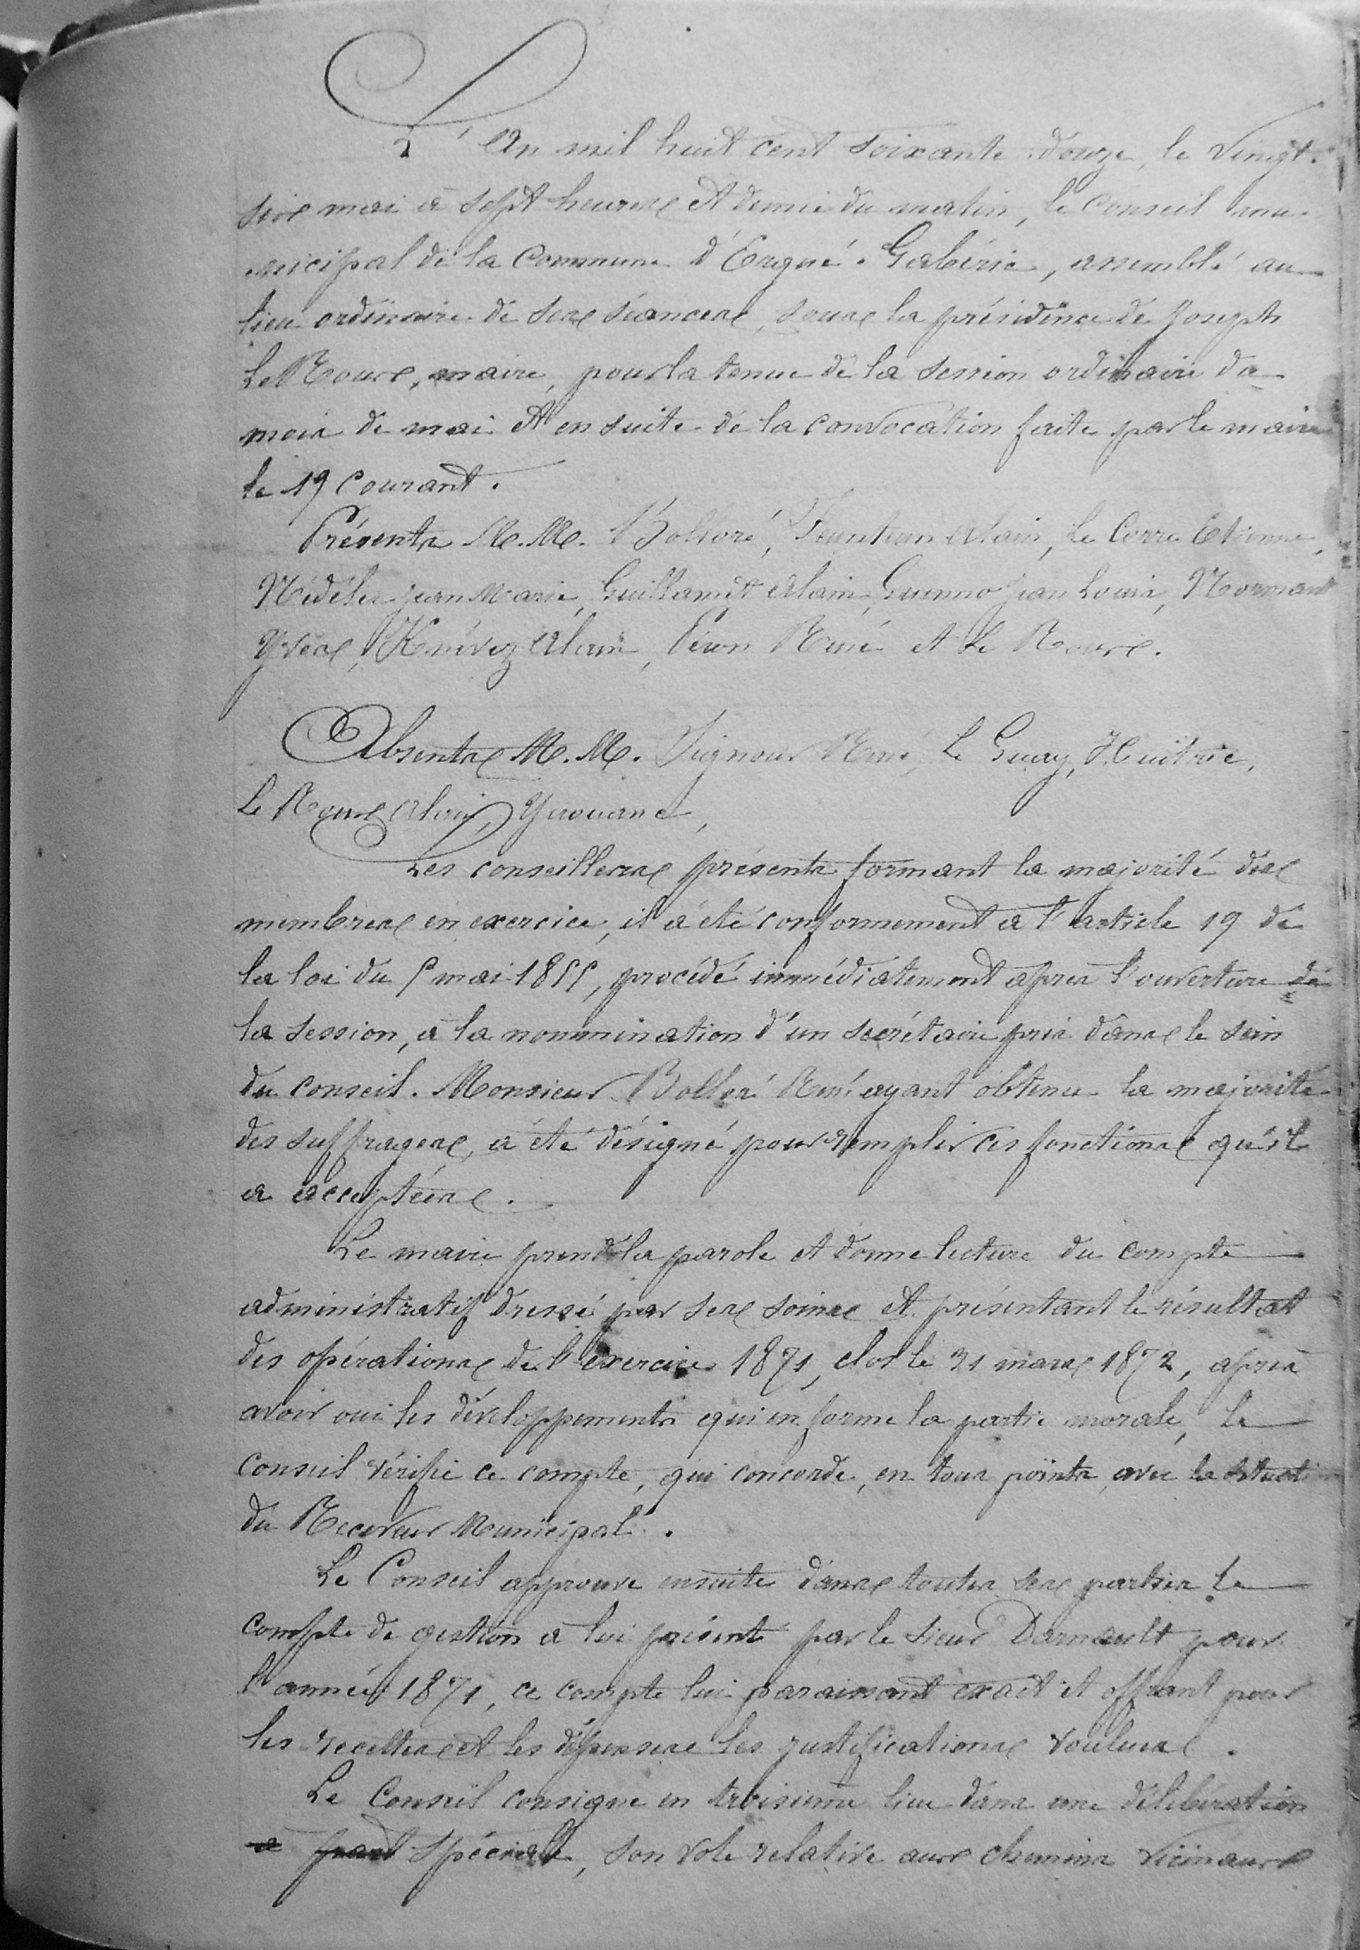 L'An mil huit cent soixante douze, le vingt-
six mai à sept heures et demie du matin, le Conseil mu-
nicipal de la Commune d'Ergué-Gabéric, assemblé au
lieu ordinaire de ses séances, sous la présidence de Joseph
Le Roux, maire, pour la tenue de la session ordinaire du
mois de mai et en suite de la convocation faite par le maire
le 19 Courant.
Présents M.M. Bolloré, Feunteun Alain, Le Corre Etienne,
Nédélec Jean Marie, Guillamet Alain, Guenno Jean Louis, Normant
Yves, Knévez Alain, Péron René et Le Roux.
Absents M.M. Signour René, Le Guay, Huitric,
Le Roux Alain, Yaouanc,
Les conseillers présents formant la majorité des
membres en exercice, il a été conformement à l'article 19 de
la loi du 5 mai 1855, procédé immédiatement après l'ouverture de
la session, à la nommination d'un secrétaire pris dans le sein
du conseil. Monsieur Bolloré René ayant obtenu la majorité
des suffrages, a été désigné pour remplir ces fonctions qu'il
a acceptées.
Le maire prend la parole et donne lecture du compte
administratif dressé par ses soins et présentant le résultat
des opérations de l'exercice 1871, clos le 31 mars 1872, après
avoir oui les développements qui en forme la partie morale, le
Conseil vérifie ce compte, qui concorde, en tous points, avec la situation
du Receveur Municipal.
Le Conseil approuve ensuite dans toutes ses parties le
compte de gestion à lui présenté par le sieur Darnault pour
l'année 1871, ce compte lui paraissant exact et offrant pour
les recettes et les dépenses les justifications voulues.
Le Conseil consigne en troisième lieu dans une délibération
à part spéciale, son vote relative aux chemins vicinaux